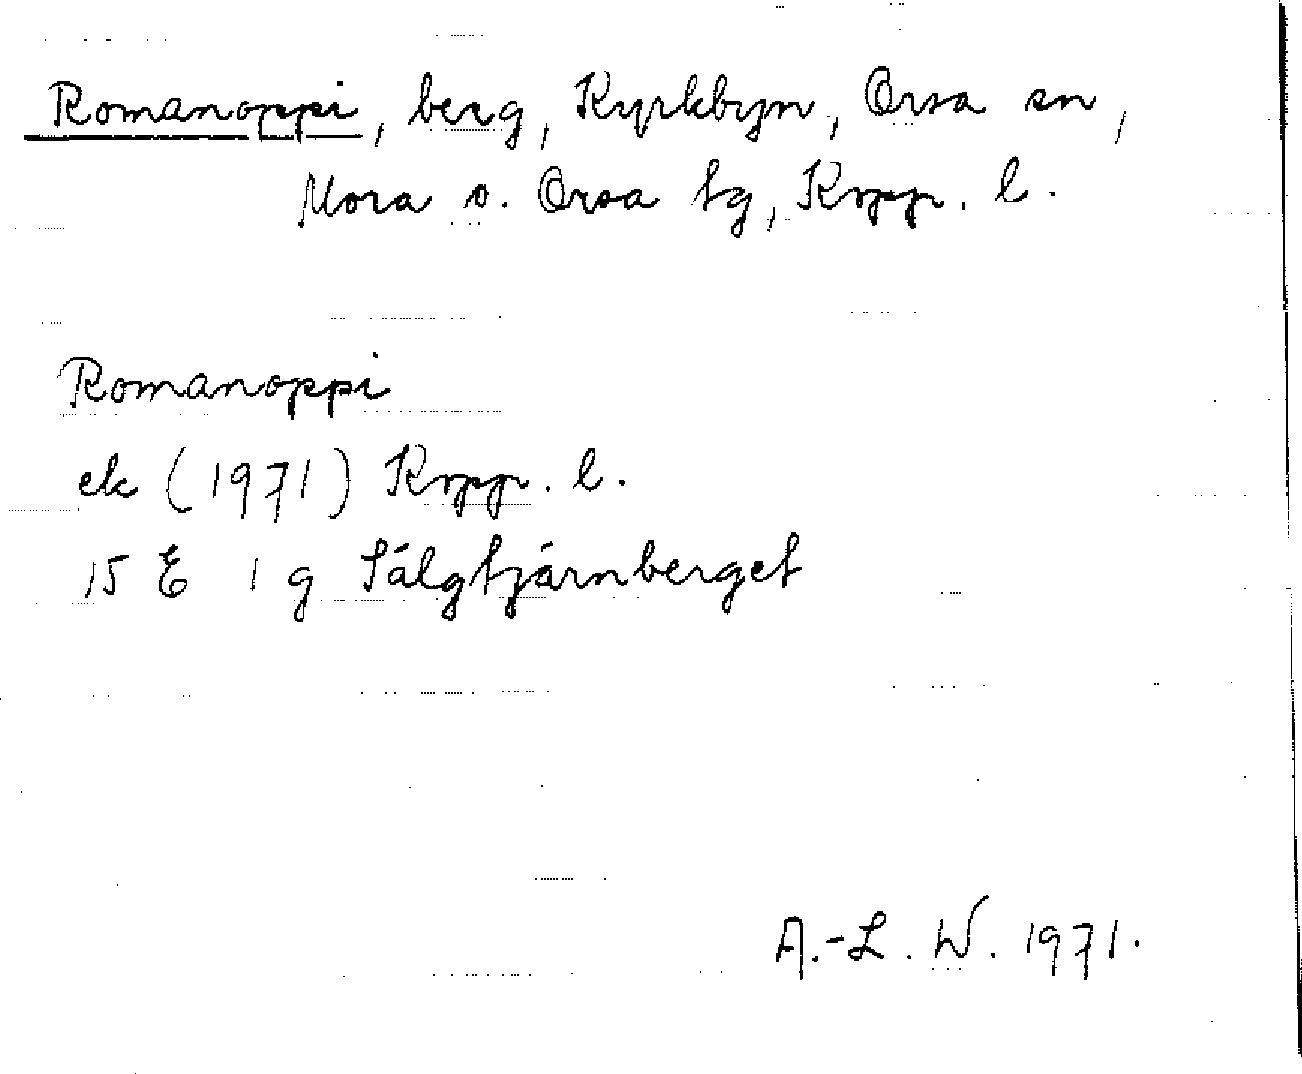 Romanoppi, berg, Kyrkbyn, Orsa sn,
Mora o. Orsa tg, Kopp. l.
Romanoppi
ek (1971) Kopp. l.
15 E 1 g Sälgtjärnberget
A.-L. W. 1971.